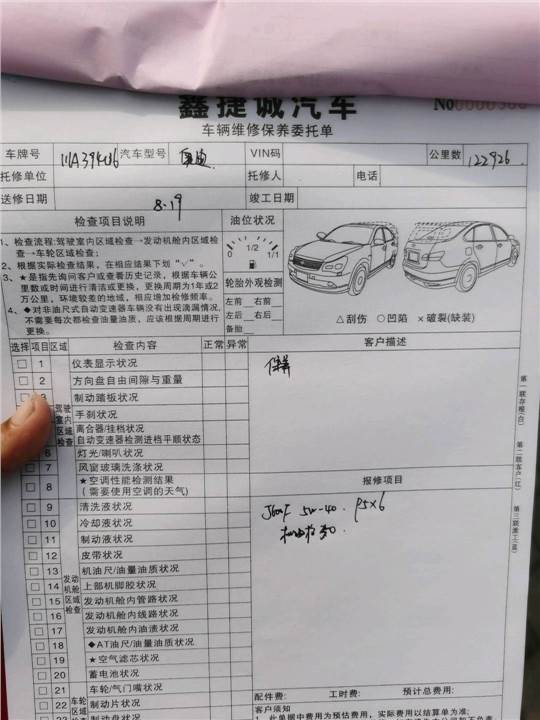 鑫捷诚汽车
No
车辆维修保养委托单
车牌号 汽车型号 VIN码 公里数 122926
托修单位 托修人 电话
送修日期 8.19 竣工日期
检查项目说明
1、检查流程:驾驶室内区域检查→发动机舱内区域检
查→车轮区域检查;
2、根据实际检查结果,在相应结果下划“√”。
3、★是指先询问客户或查看历史记录,根据车辆公
里数或时间进行清洁或更换,更换周期为1年或2
万公里,环境较差的地域,相应增加检修频率。
4、◆对非油尺式自动变速器车辆没有出现滴漏情况,
不需要每次都检查油量油质,应该根据周期进行
更换。
油位状况
0 1/2 1/1
轮胎外观检测
左前 右前
左后 右后
备胎
△刮伤 ○凹陷 ×破裂(缺装)
选择 项目 区域 检查内容 正常 异常
驾驶室内区域检查
1 仪表显示状况
2 方向盘自由间隙与重量
3 制动踏板状况
手刹状况
离合器/挂档状况
自动变速器检测进档平顺状态
6 灯光/喇叭状况
7 风窗玻璃洗涤状况
8 ★空调性能检测结果
(需要使用空调的天气)
发动机舱区域检查
9 清洗液状况
10 冷却液状况
11 制动液状况
12 皮带状况
13 机油尺/油量油质状况
14 上部机脚胶状况
15 发动机舱内管路状况
16 发动机舱内线路状况
17 发动机舱内油渍状况
18 ◆AT油尺/油量油质状况
19 ★空气滤芯状况
20 蓄电池状况
车轮区域检查
21 车轮/气门嘴状况
22 制动片状况
23 制动盘状况
客户描述
保养
报修项目
5w-40
配件费: 工时费: 预计总费用:
客户须知
1、此单据中费用为预估费用,实际费用以结算单为准。
第一联存根(白)
第二联客户(红)
第三联派工(蓝)